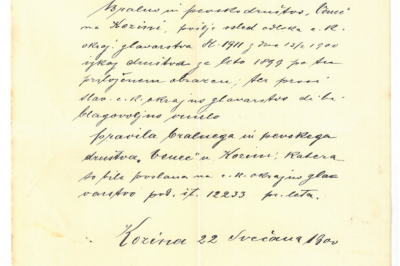 Bralno in pevsko društvo, "Venec"
na Kozini, pošlje vsled odloka c. k.
okraj. glavarstva št. 1911 z dne 13/2 1900
izkaz društva za leto 1899 po tu
priloženem obrazcu; ter prosi
slav. c. k. okrajno glavarstvo di bla-
blagovoljno vrnilo
Pravila bralnega in pevskega
društva, "Venec" v Kozini; katera
so bila poslana na c. k. okrajno gla-
varstvo pod. št. 12233 pr. leta.
Kozina 22 Svečana 1900